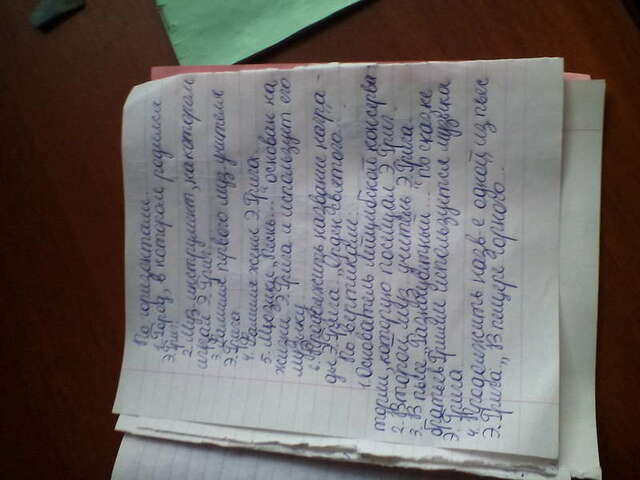 По горизонтали
1. Город, в котором родился
Э. Григ.
2. Муз. инструмент, на котором
играл Э. Григ.
3. Фамилия первого муз. учителя
Э. Грига
4. Фамилия жены Э. Грига.
5. Мюзикл „Песнь..." основан на
жизни Э. Грига и использует его
музыку.
6. Продолжить название награ-
ды Э. Грига „Орден Святого...
По вертикали
1. Основатель Лейпцигской консерва-
тории, которую посещал Э. Григ.
2. Второй муз. учитель Э. Грига.
3. В пьесе
"по сказке
братьев Гримм используется музыка
Э. Грига
4. Продолжить назв-е одной из пьес
Э. Грига „В пещере горного...